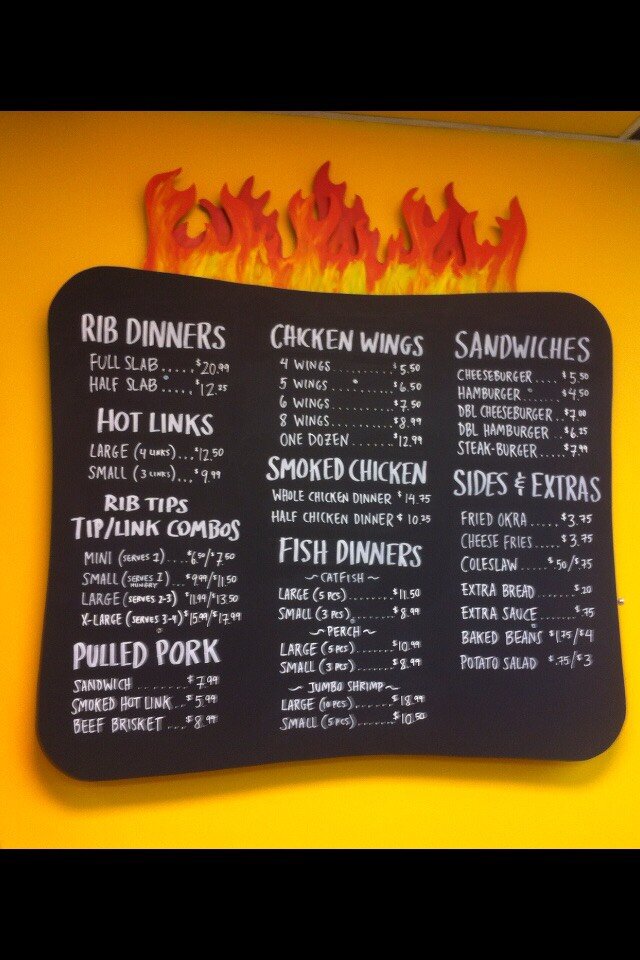 RIB DINNERS
FULL SLAB.....$20.99
HALF SLAB.....$12.25
HOT LINKS
LARGE (4 LINKS)...$12.50
SMALL (3 LINKS)...$9.99
RIB TIPS
TIP/LINK COMBOS
MINI (SERVES 1)....$6.50/$7.50
SMALL (SERVES 1 HUNGRY)...$9.99/$11.50
LARGE (SERVES 2-3) $11.99/$13.50
X-LARGE (SERVES 3-4) $15.99/$17.99
PULLED PORK
SANDWICH.........$7.99
SMOKED HOT LINK...$5.99
BEEF BRISKET....$8.99
CHICKEN WINGS
4 WINGS..........$5.50
5 WINGS..........$6.50
6 WINGS..........$7.50
8 WINGS..........$8.99
ONE DOZEN........$12.99
SMOKED CHICKEN
WHOLE CHICKEN DINNER $14.75
HALF CHICKEN DINNER $10.25
FISH DINNERS
~CATFISH~
LARGE (5 PCS).......$11.50
SMALL (3 PCS).......$8.99
~PERCH~
LARGE (5 PCS).......$10.99
SMALL (3 PCS).......$8.99
~JUMBO SHRIMP~
LARGE (10 PCS)......$18.99
SMALL (5 PCS).......$10.50
SANDWICHES
CHEESEBURGER....$5.50
HAMBURGER.....$4.50
DBL CHEESEBURGER..$7.00
DBL HAMBURGER..$6.25
STEAK-BURGER....$7.99
SIDES & EXTRAS
FRIED OKRA.....$3.75
CHEESE FRIES....$3.75
COLESLAW.....$.50/$.75
EXTRA BREAD.....$.20
EXTRA SAUCE.....$.75
BAKED BEANS $1.75/$4
POTATO SALAD $.75/$3